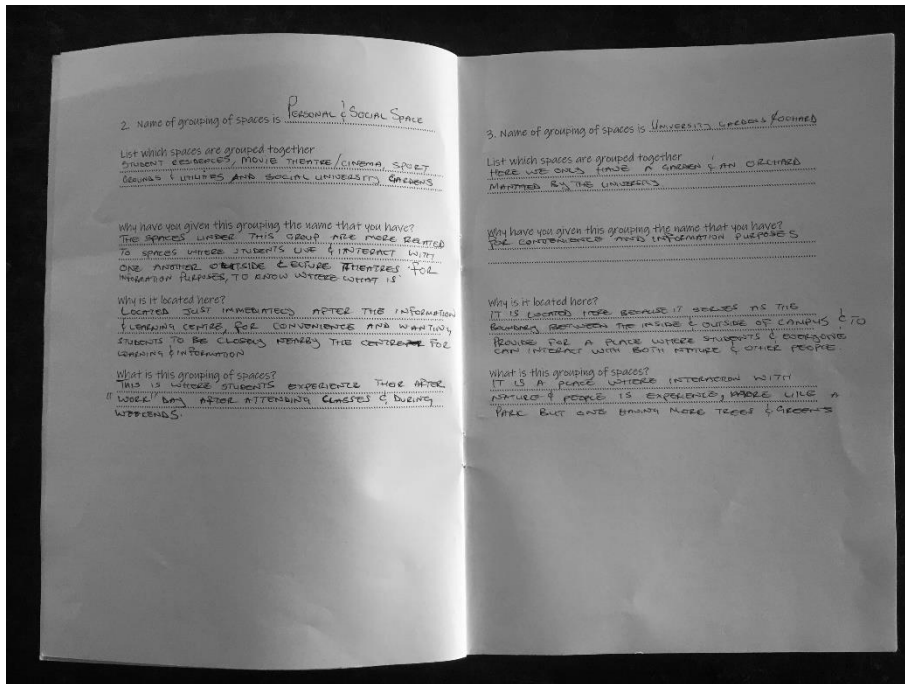 2. Name of grouping of spaces is PERSONAL & SOCIAL SPACE
List which spaces are grouped together
STUDENT RESIDENCES, MOVIE THEATRE/CINEMA, SPORT
GROUNDS & UTILITIES AND SOCIAL UNIVERSITY GARDENS
Why have you given this grouping the name that you have?
THE SPACES UNDER THIS GROUP ARE MORE RELATED
TO SPACES WHERE STUDENTS LIVE & INTERACT WITH
ONE ANOTHER OUTSIDE LECTURE THEATRES FOR
INFORMATION PURPOSES, TO KNOW WHERE WHAT IS
Why is it located here?
LOCATED JUST IMMEDIATELY AFTER THE INFORMATION
& LEARNING CENTRE, FOR CONVENIENCE AND WANTING
STUDENTS TO BE CLOSELY NEARBY THE CENTRE FOR
LEARNING & INFORMATION
What is this grouping of spaces?
THIS IS WHERE STUDENTS EXPERIENCE THER AFTER
"WORK DAY AFTER ATTENDING CLASSES & DURING
WEEKENDS.
3. Name of grouping of spaces is UNIVERSITY GARDENS
List which spaces are grouped together
HERE WE ONLY HAVE A GARDEN & AN ORCHARD
MANAGED BY THE UNIVERSITY
Why have you given this grouping the name that you have?
FOR CONVENIENCE AND INFORMATION PURPOSES
Why is it located here?
IT IS LOCATED HERE BECAUSE IT SERVES AS THE
BOUNDARY BETWEEN THE INSIDE & OUTSIDE OF CAMPUS & TO
PROVIDE FOR A PLACE WHERE STUDENTS & EVERYONE
CAN INTERACT WITH BOTH NATURE & OTHER PEOPLE
What is this grouping of spaces?
IT IS A PLACE WHERE INTERACTION WITH
NATURE & PEOPLE IS EXPERIENCE, MORE LIKE A
PARK BUT ONE HAVING MORE TREES & GREENS